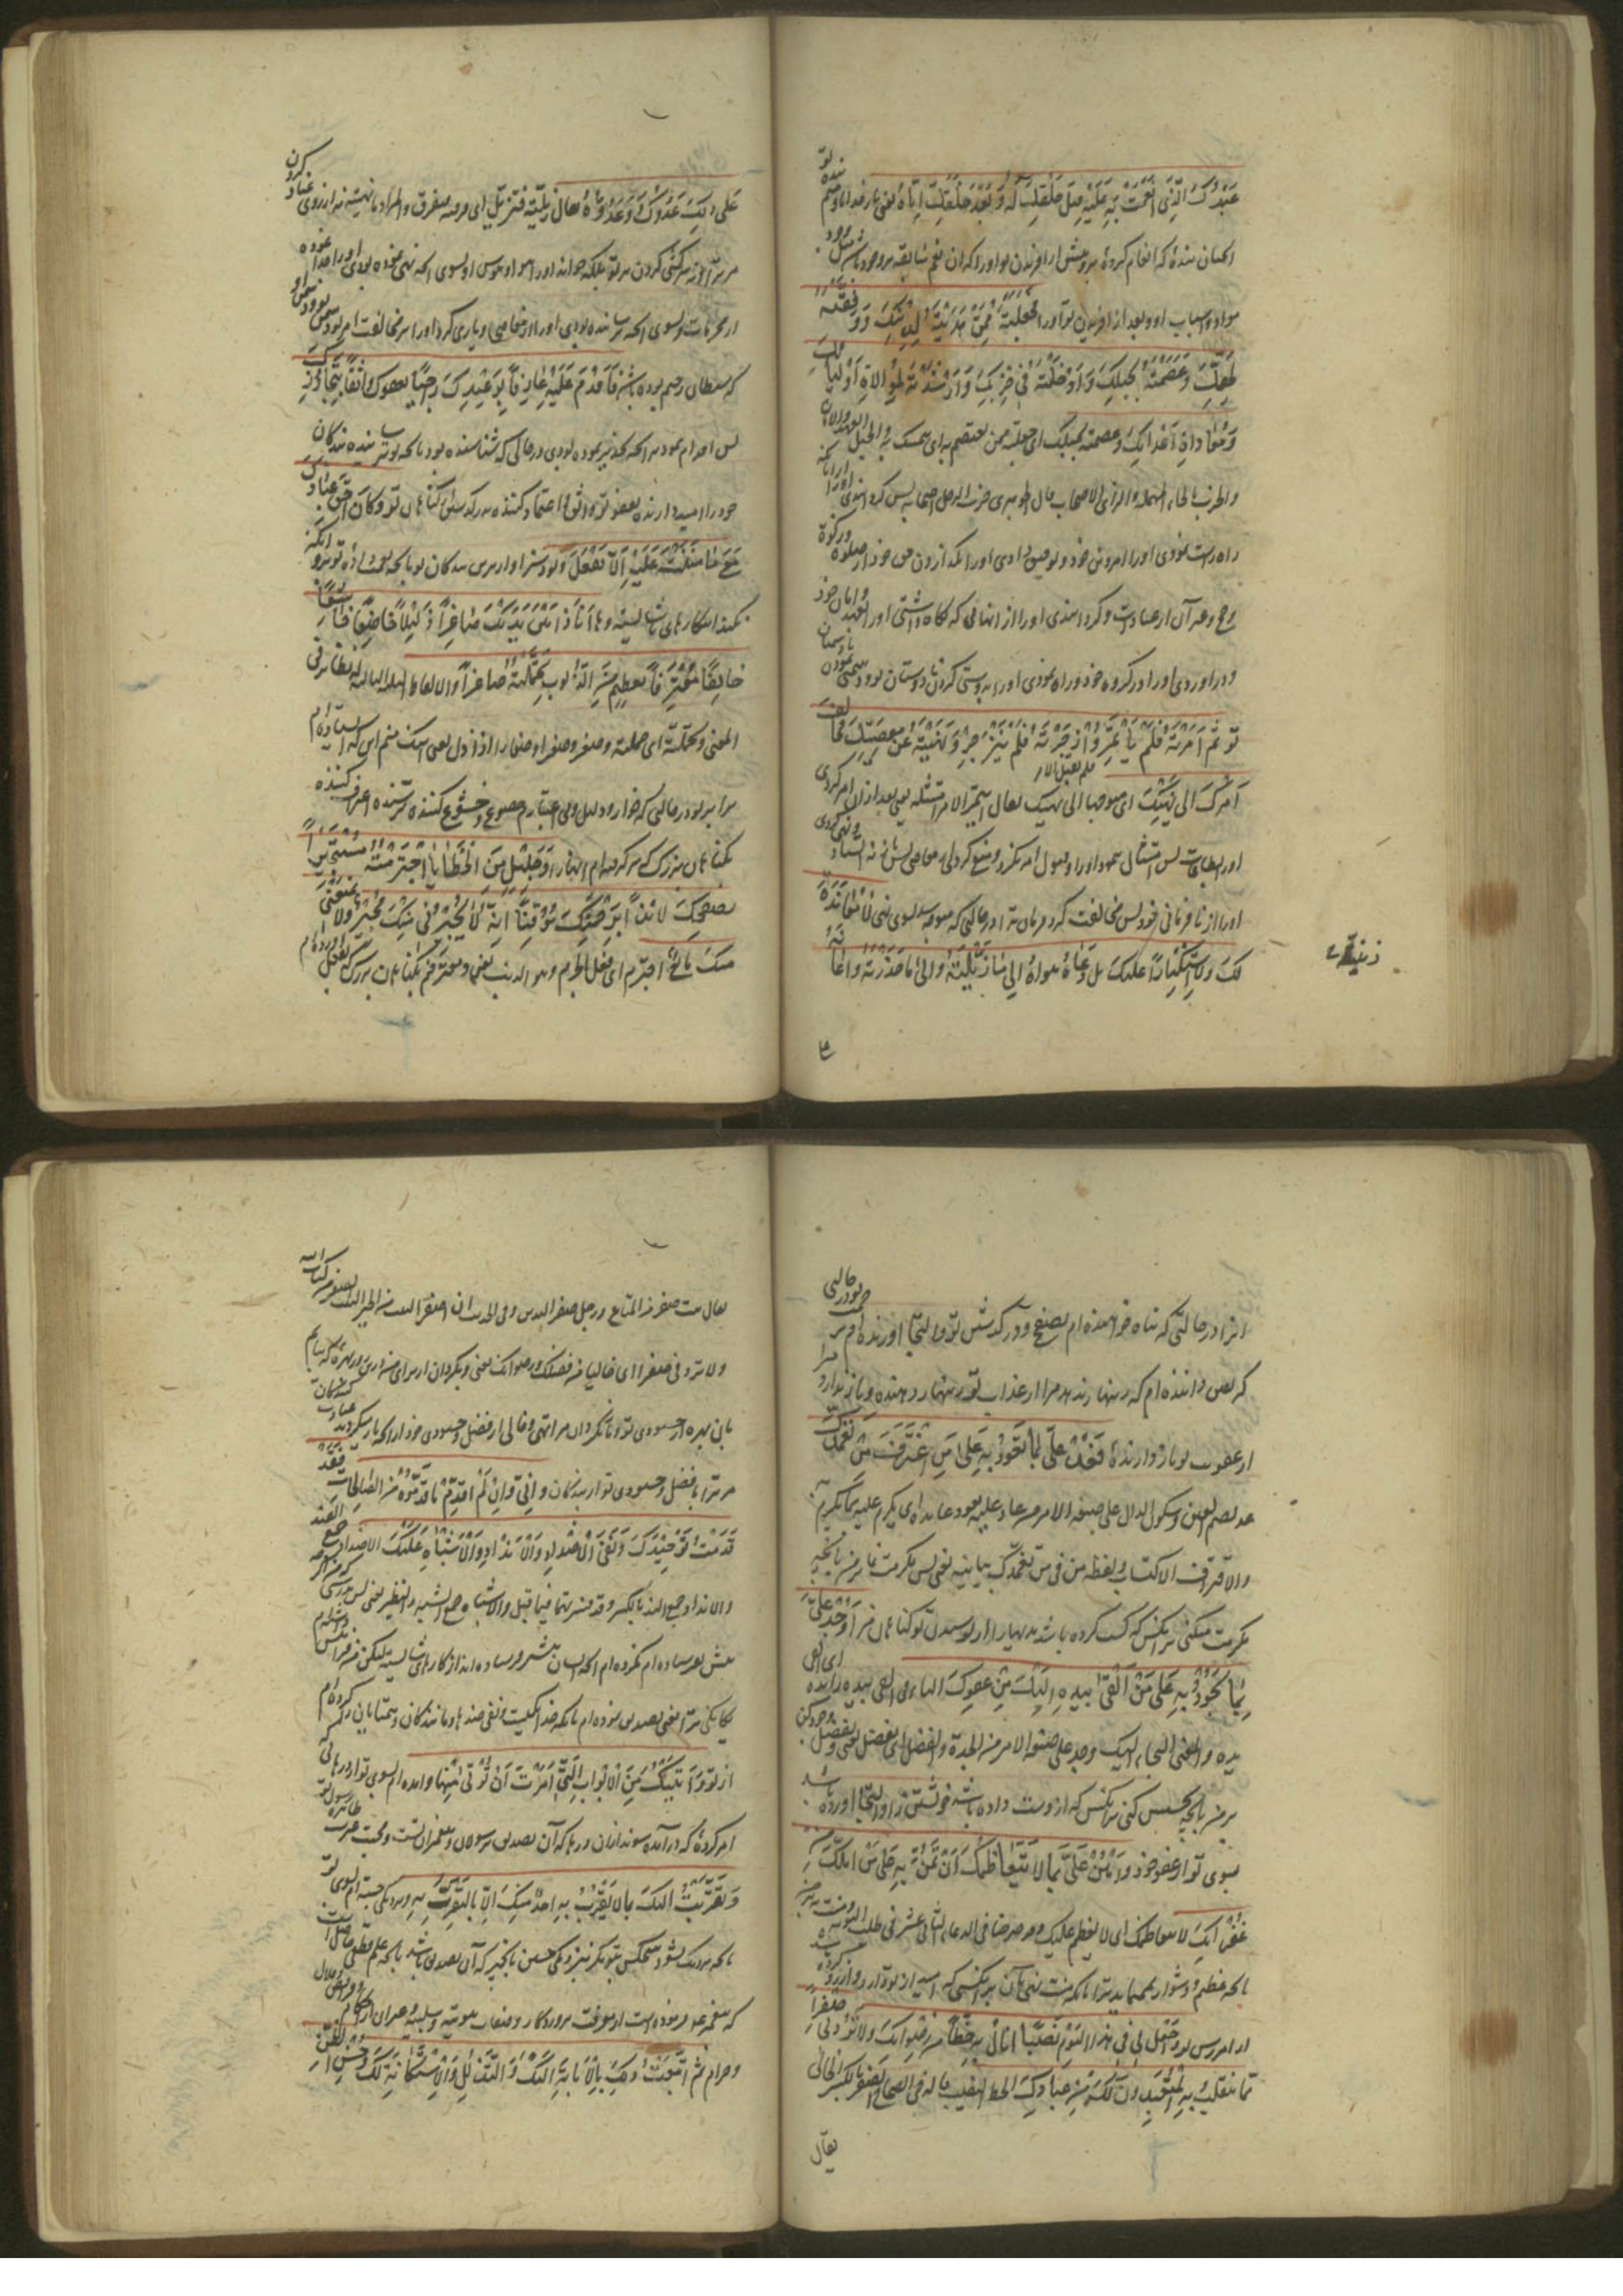 عَبْدُكَ الَّذِی اَنْعَمْتَ بِهِ عَلَیْهِ قَبْلَ خَلْقِکَ لَهُ وَ بَعْدَ خَلْقِکَ اِیّاهُ یعنی بار خدایا و منم بنده تو
انچنان بندهٔ که انعام کردهٔ برو پیش از افریدن تو او را که ان نعم سابقه بر وجود
مواد و اسباب او و بعد از افریدن تو او را فَجَعَلْتَهُ مِمَّنْ هَدَیْتَهُ لِدِینِکَ وَ وَفَّقْتَهُ
لِحَقِّکَ وَ عَصَمْتَهُ بِحَبْلِکَ وَ اَدْخَلْتَهُ فی حِزْبِکَ وَ اَرْشَدْتَهُ لِمُوالاةِ اَوْلِیائِکَ
وَ مُعاداةِ اَعْدائِکَ وعصمته بحبلک ای جعلته ممن یعتصم به ای یتمسک به والحبل العهد والامان
والحزب بالحاء المهملة والزای الاصحاب قال الجوهری حزب الرجل اصحابه پس کردانیدی او را
راه راست نمودی او را بدین خود و توفیق دادی او را بگذاردن حق خود از صلوة و زکوة
و حج و غیر آن از عبادات و کردانیدی او را از انهائی که نکاه داشتی او را بعهد و امان خود
و در اوردی او را در کروه خود و راه نمودی او را به دوستی کردن با دوستان تو و دشمنی نمودن با دشمنان
تو ثُمَّ اَمَرْتَهُ فَلَمْ یَأْتَمِرْ وَ زَجَرْتَهُ فَلَمْ یَنْزَجِرْ وَ نَهَیْتَهُ عَنْ مَعْصِیَتِکَ فَخالَفَ
اَمْرَکَ اِلی نَهْیِکَ ای متوجها الی نهیک یقال ایتمر الامر امتثله یعنی بعد از ان امر کردی
او را بطاعات پس امتثال ننمود او را و قبول امر نکرد و منع کردی از معاصی پس باز نه ایستاد و نهی کردی
او را از نافرمانی خود پس مخالفت کرد فرمان ترا در حالتی که متوجه شد بسوی نهی لا مُعانَدَةً
لَکَ وَ لاَ اسْتِکْباراً عَلَیْکَ بَلْ دَعاهُ هَواهُ اِلی ما زَیَّلْتَهُ وَ اِلی ما حَذَّرْتَهُ وَ اَعانَهُ
زیّلته
عَلی ذلِکَ عَدُوُّکَ وَ عَدُوُّهُ یقال زیّلته فتزیّل ای فرقته فتفرق والمراد ما نهیته نه از روی عناد کردن
مر ترا و نه سرکشی کردن بر تو بلکه خواند او را هوا و هوس او بسوی انچه نهی نموده بودی او را
از محرمات و بسوی انچه ترسانیده بودی او را از معاصی و یاری کرد او را بر مخالفت امر تو دشمن تو و دشمن او
که شیطان رجیم بوده باشد فَاَقْدَمَ عَلَیْهِ عارِفاً بِوَعِیدِکَ راجِیاً لِعَفْوِکَ واثِقاً بِتَجاوُزِکَ
پس اقدام نمود بر انچه تحذیر نموده بودی در حالی که شناسنده بود بانچه ترسانیده بندکان
خود را امیدوارنده بعفو تو و واثق و اعتماد کننده بدر کذشتن کناهان تو وَ کانَ اَحَقَّ عِبادِکَ
مَعَ ما مَنَنْتَ عَلَیْهِ اَلاّ یَفْعَلَ و بود سزاوارترین بندکان تو بانچه منت نهادهٔ تو برو
نکند این کارهای ناشایسته وَ ها اَنَا ذا بَیْنَ یَدَیْکَ صاغِراً ذَلیلاً خاضِعاً خاشِعاً
خائِفاً مُعْتَرِفاً بِعَظیمٍ مِنَ الذُّنُوبِ تَحَمَّلْتُهُ صاغرا والالفاظ التالیة له نظائر فی
المعنی و تحمّلته ای حملته و صغر صغرا و صغارا اذا ذل یعنی اینک منم این که ایستاده ام
برابر تو در حالی که خوار و ذلیل و بی اعتبارم خضوع و خشوع کننده ترسنده اعتراف کننده
بکناهان بزرک که مرتکب شده ام انها را وَ جَلیلٍ مِنَ الْخَطایا اجْتَرَمْتُهُ مُسْتَجیراً
بِصَفْحِکَ لائِذاً بِرَحْمَتِکَ مُوقِناً اَنَّهُ لا یُجیرُنی مِنْکَ مُجیرٌ وَ لا یَمْنَعُنی
مِنْکَ مانِعٌ اجترم ای فعل الجرم و هو الذنب یعنی و معترفم بکناهان بزرک که بفعل اورده ام
انرا در حالتی که پناه خواهنده ام بصفح و در کذشتن تو و التجا اورنده ام بر رحمت تو در حالتی
که یقین داننده ام که زنهار ندهد مرا از عذاب تو زنهار دهنده و باز ندارد مرا
از عقوبت تو باز دارندهٔ فَعُدْ عَلَیَّ بِما تَعُودُ بِهِ عَلی مَنِ اقْتَرَفَ مِنْ تَغَمُّدِکَ
عد بضم العین وسکون الدال علی صیغة الامر من عاد علیه یعود عایدة ای تکرم علیه بما تکرم به
والاقتراف الاکتساب ولفظه من فی من تغمّدک بیانیه یعنی پس مکرمت نما بر من بانچه
مکرمت میکنی بر انکس که کسب کرده باشد بدیها را از پوشیدن تو کناهان من را وَ جُدْ عَلَیَّ
بِما تَجُودُ بِهِ عَلی مَنْ اَلْقی بِیَدِهِ اِلَیْکَ مِنْ عَفْوِکَ الباء فی القی بیده زایده ای القی
یده والمعنی التجاء الیک وجد علی صیغة الامر من الجود والتفضل ای تفضل یعنی و تفضل و جود کن
بر من بانچه بخشش کنی بر انکس که از دست داده باشد خویشتن را و التجا اورده باشد
بسوی تو از عفو خود وَ امْنُنْ عَلَیَّ بِما لا یَتَعاظَمُکَ اَنْ تَمُنَّ بِهِ عَلی مَنْ اَمَّلَکَ مِنْ
غُفْرانِکَ لا یتعاظمک ای لا یعظم علیک و مر مرضا فی الدعاء الثانی عشر فی طلب التوبه و منت نه بر من
بانچه عظیم و دشوار نمینماید ترا بانکه منت نهی بآن بر انکسی که امید از تو دارد و ارزو کرده باشد
از امرزش تو وَ اجْعَلْ لی فی هذَا الْیَوْمِ نَصیباً اَنالُ بِهِ حَظّاً مِنْ رِضْوانِکَ وَ لا تَرُدَّنی صِفْراً
مِمّا یَنْقَلِبُ بِهِ الْمُتَعَبِّدُونَ لَکَ مِنْ عِبادِکَ الحظ النصیب قاله فی الصحاح الصفر بالکسر الخالی
یقال
یقال بیت صفر من المتاع و رجل صفر الیدین و فی الحدیث ان اصفر البیت من الخیر البیت الصفر من کتاب الله
ولا تردنی صفرا ای خالیا من فضلک و رضوانک یعنی و بکردان از برای من درین روز بهرهٔ که بیابم
بآن بهره از خشنودی تو و باز نکردان مرا تهی و خالی از فضل و خشنودی خود از انچه باز میکردند عبادت کنندکان
مر ترا بفضل و خشنودی تو از بندکان وَ اِنّی وَ اِنْ لَمْ اُقَدِّمْ ما قَدَّمُوهُ مِنَ الصّالِحاتِ فَقَدْ
قَدَّمْتُ تَوْحیدَکَ وَ نَفْیَ الاَضْدادِ وَ الاَنْدادِ وَ الاَشْباهِ عَنْکَ الاضداد جمع الضد
والانداد جمع الند بالکسر و قد فسرتهما فیما قبل والاشباه جمع الشبه والنظیر یعنی بدرستی که من اکرچه
پیش نفرستاده ام نکرده ام انچه ایشان پیش فرستاده اند از کارهای شایسته لیکن من
یکانکی ترا یعنی تصدیق نموده ام بانکه خدا یکیست و نفی ضدها و مانندکان و همتایان کرده ام
از تو وَ اَتَیْتُکَ مِنَ الاَبْوابِ الَّتی اَمَرْتَ اَنْ تُؤْتی مِنْها و امده ام بسوی تو از درهائی که
امر کردهٔ که درآمده شوند ازان درها که آن تصدیق رسولان و پیغمبران تست و محبت عترت طاهره رسول تو
وَ تَقَرَّبْتُ اِلَیْکَ بِما لا یَقْرُبُ بِهِ اَحَدٌ مِنْکَ اِلاّ بِالتَّقَرُّبِ بِهِ و نزدیکی جسته ام بسوی تو
بانچه نزدیک نشود هیچکس بتو مکر بنزدیکی جستن بانچیز که آن تصدیق باشد بانچه علم قطعی حاصل است
که پیغمبر تو فرموده است از معرفت پروردکار و صفات ثبوتیه و سلبیه و غیر ان از احکام و فرایض و حلال
و حرام ثُمَّ اَتْبَعْتُ ذلِکَ بِالاِنابَةِ اِلَیْکَ وَ التَّذَلُّلِ وَ الاِسْتِکانَةِ لَکَ وَ حُسْنِ الظَّنِّ